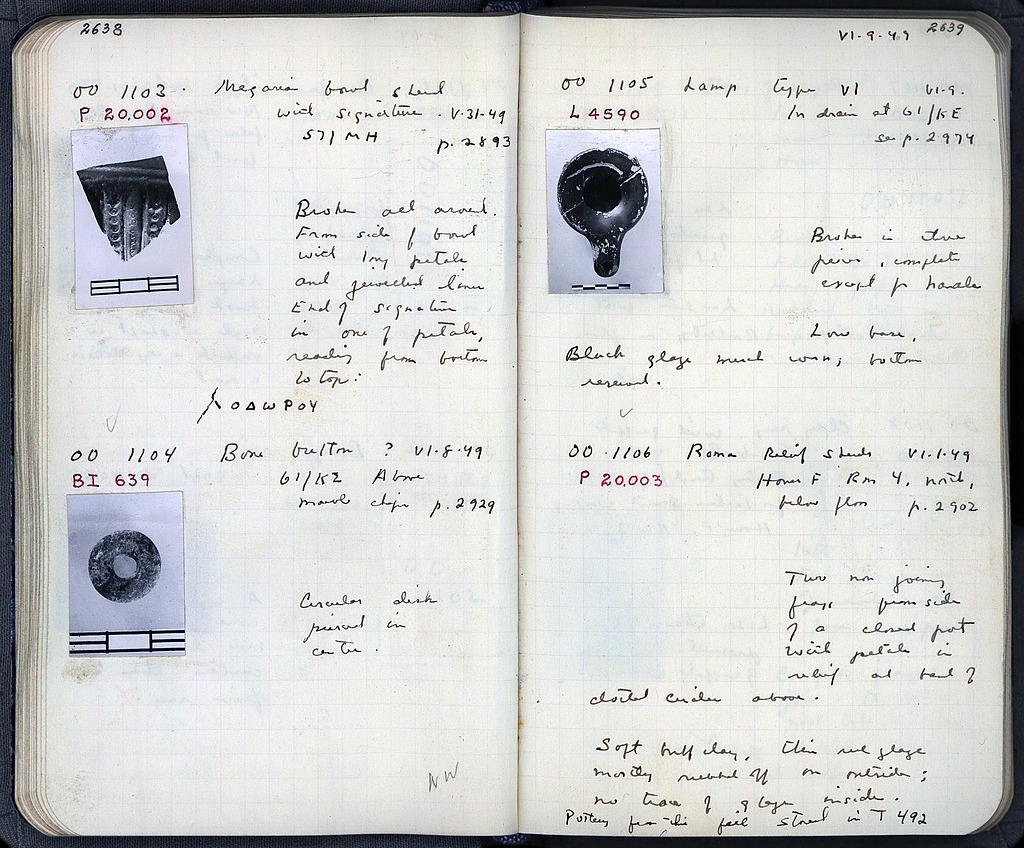 2638
OO 1103. Megarian bowl sherd
P 20,002 with signature. V-31-49
57/MH p. 2893
Broken all around.
From side of bowl
with long petals
and jewelled lines
End of signature
in one of petals,
reading from bottom
to top:
ΟΔωΡΟΥ
OO 1104 Bone button ? VI-8-49
BI 639 61/KE Above
marble chips p. 2929
Circular disk
pierced in
center.
NW
VI-9-49 2639
OO 1105 Lamp type VI VI-9.
L 4590 In drain at 61/KE
see p. 2974
Broken in three
pieces, complete
except for handle
Low base,
Black glaze much worn; bottom
reserved.
OO 1106 Roman Relief sherds VI-1-49
P 20,003 House F Rm 4, north,
below floor p. 2902
Two non joining
frags from side
of a closed pot
with petals in
relief at base of
dotted circles above.
Soft buff clay, thin red glaze
mostly rubbed off on outside;
no trace of glaze inside.
Pottery from this fill stored in T 492